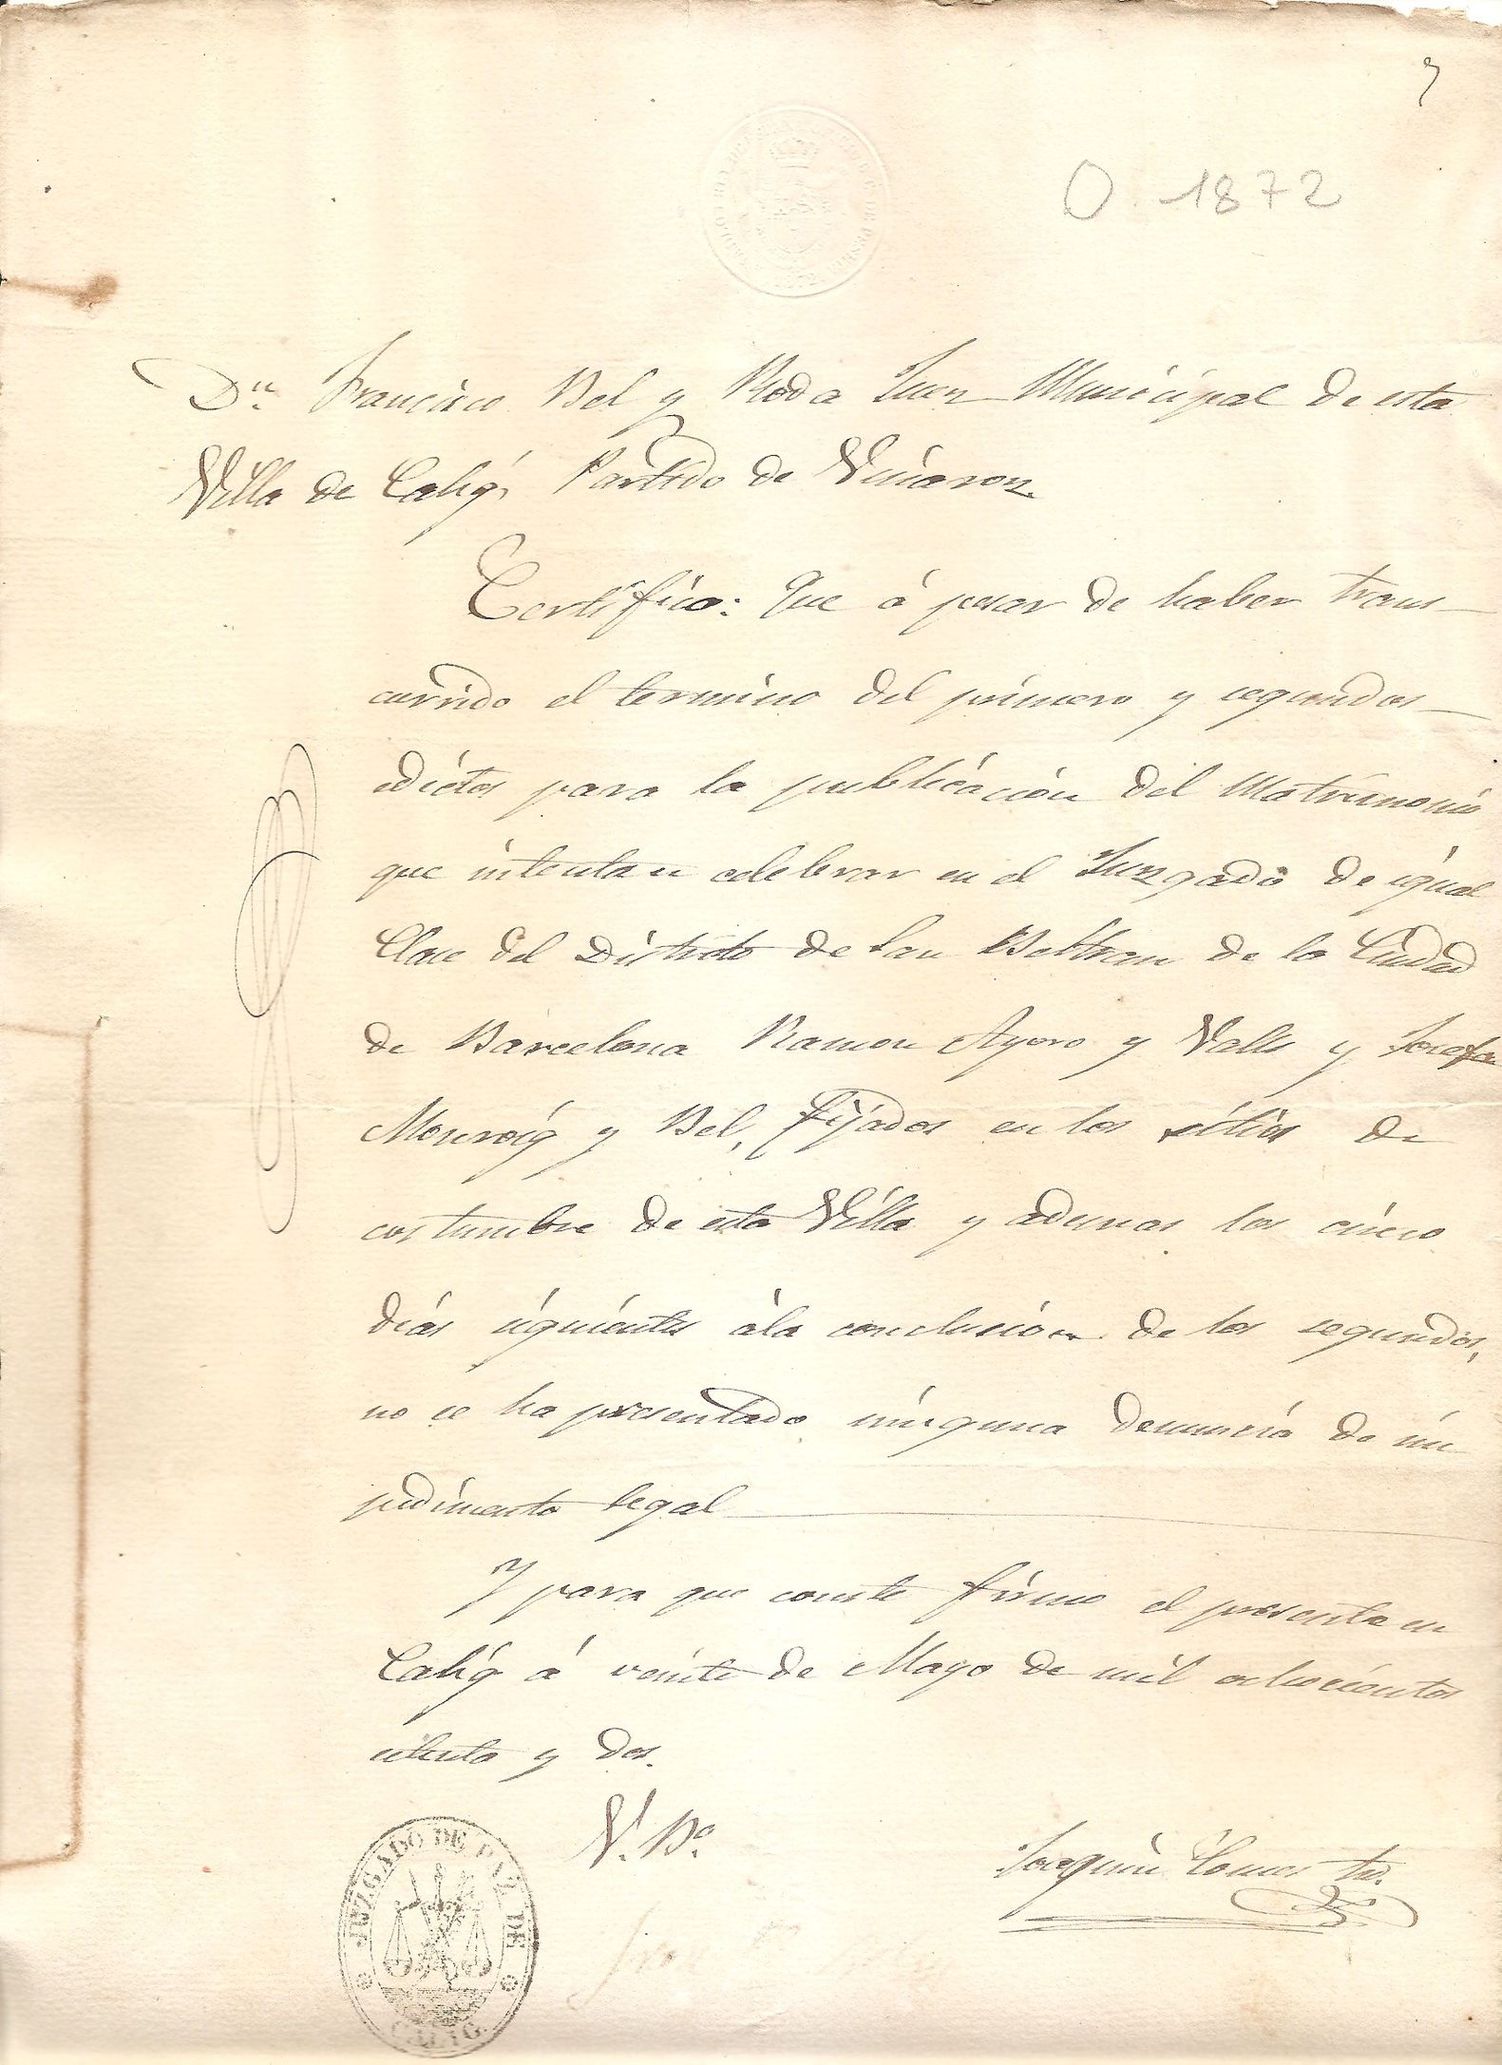 O. 1872
Dn. Francisco Bel y Roda Juez Municipal de esta
Villa de Calig, Partido de Vinaroz.
Certifico: Que á pesar de haber trans
currido el termino del primero y segundos
edictos para la publicación del Matrimonio
que intentan celebrar en el Juzgado de igual
Clase del Distrito de San Beltran de la Ciudad
de Barcelona Ramon Ayoro y Valls y Josefa
Monroig y Bel, fijados en los sitios de
costumbre de esta Villa y ademas los cinco
dias siguientes á la conclusion de los segundos,
no se ha presentado ninguna denuncia de im
pedimento legal
Y para que conste firmo el presente en
Calig á veinte de Mayo de mil ochocientos
setenta y dos.
V. Bo.
Joaquin Comes
JUZGADO DE PAZ DE
CALIG.